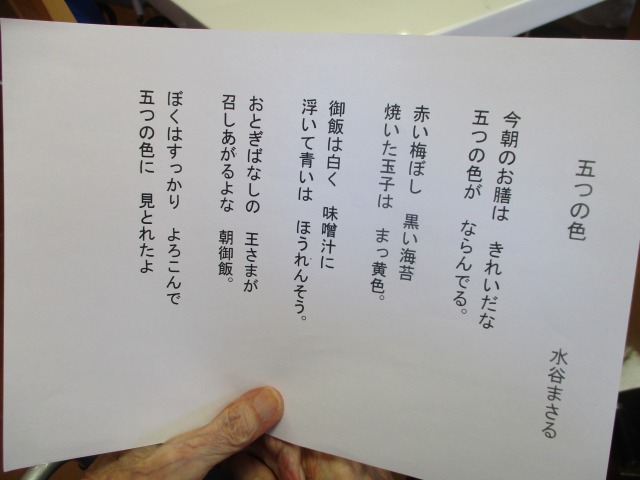 五つの色
水谷まさる
今朝のお膳は　きれいだな
五つの色が　ならんでる。
赤い梅ぼし　黒い海苔
焼いた玉子は　まっ黄色。
御飯は白く　味噌汁に
浮いて青いは　ほうれんそう。
おとぎばなしの　王さまが
召しあがるよな　朝御飯。
ぼくはすっかり　よろこんで
五つの色に　見とれたよ